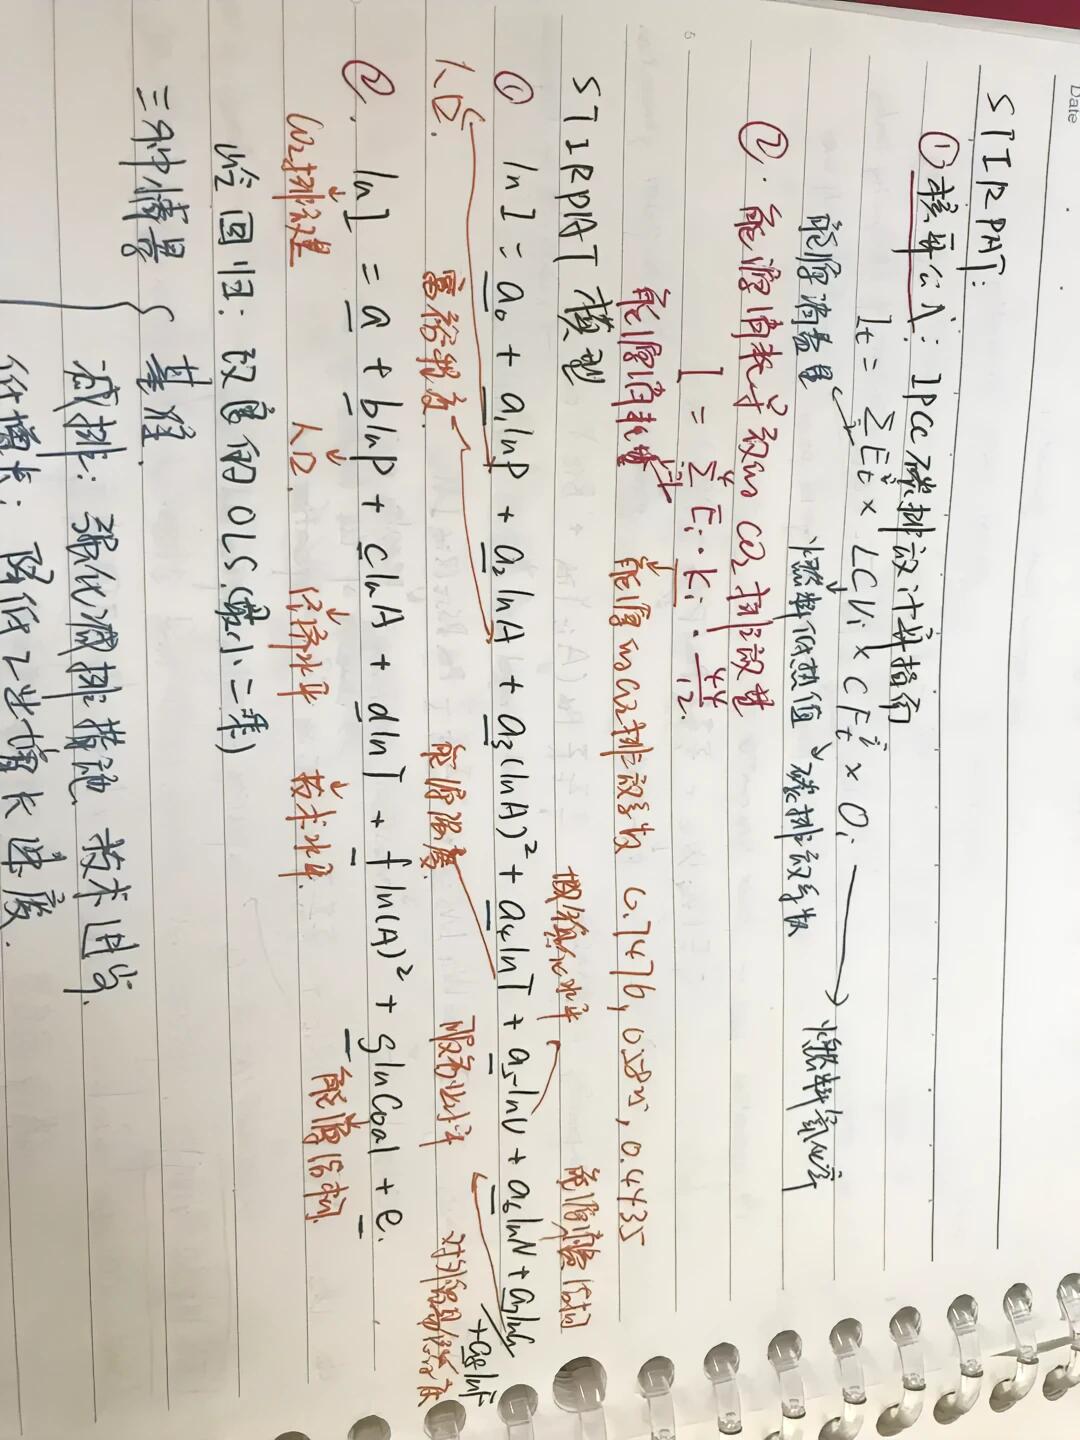 Date
STIRPAT:
① 核算公式: IPCC 碳排放计算指南
I_t = Σ_i E_t^i × LCV_i × CF_t^i × O_i
能源消费量 燃料低热值 碳排放系数 燃料氧化率
② · 能源消耗导致的 CO₂ 排放量
I = Σ_{i=1}^{4} E_i · K_i · 44/12.
能源消耗量 能源的CO₂排放系数 0.7476, 0.5825, 0.4435
STIRPAT 模型
城镇化水平 能源消费结构
① lnI = a₀ + a₁lnP + a₂lnA + a₃(lnA)² + a₄lnT + a₅lnU + a₆lnN + a₇lnG
+a₈lnF
人口. 富裕程度. 能源强度. 服务业水平 对外贸易依存度
②. lnI = a + blnP + clnA + dlnT + f ln(A)² + glnCoal + e.
CO₂排放量 人口. 经济水平 技术水平. 能源结构.
岭回归: 改良的OLS.(最小二乘)
三种情景 { 基准.
减排: 强化减排措施. 技术进步.
低增长: 降低工业增长速度.